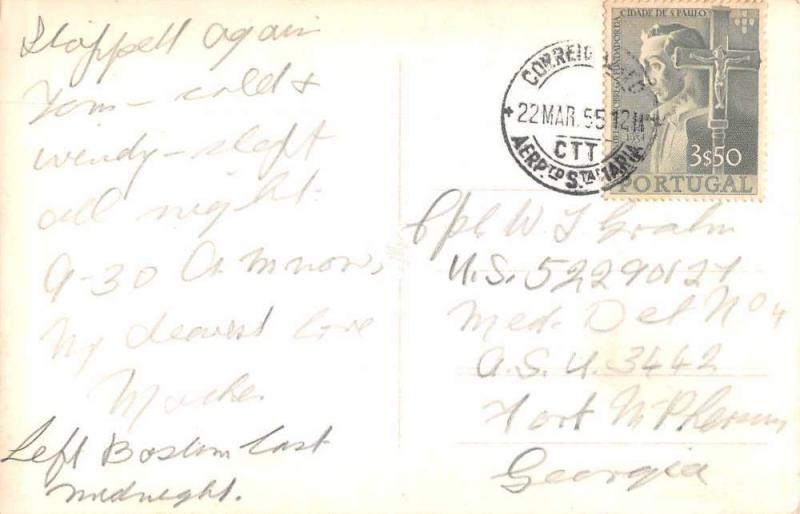 Stopped again
Tom - cold &
windy - slept
all night.
9-30 A.M now,
My dearest love
Mother
Left Boston last
midnight.
CORREIO
22 MAR. 55 12H
CTT
AERPTO STA MARIA
CIDADE DE S. PAULO
3$50
PORTUGAL
W
U.S. 52290127
Med. Det No 4
A.S.U. 3442
Fort McPherson
Georgia